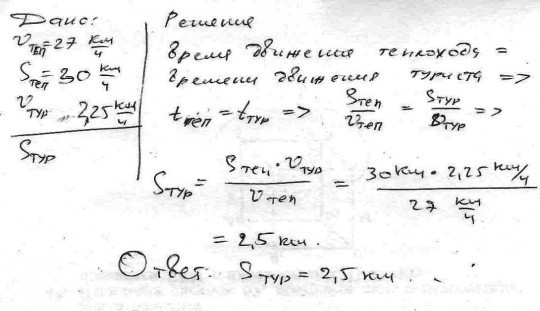 Дано:
υтеп = 27 км/ч
Sтеп = 30 км/ч
υтур 2,25 км/ч
Sтур
Решение
Время движения теплохода =
времени движения туриста =>
tтеп = tтур => Sтеп/υтеп = Sтур/υтур =>
Sтур = Sтеп · υтур / υтеп = 30 км · 2,25 км/ч / 27 км/ч
= 2,5 км.
Ответ: Sтур = 2,5 км.